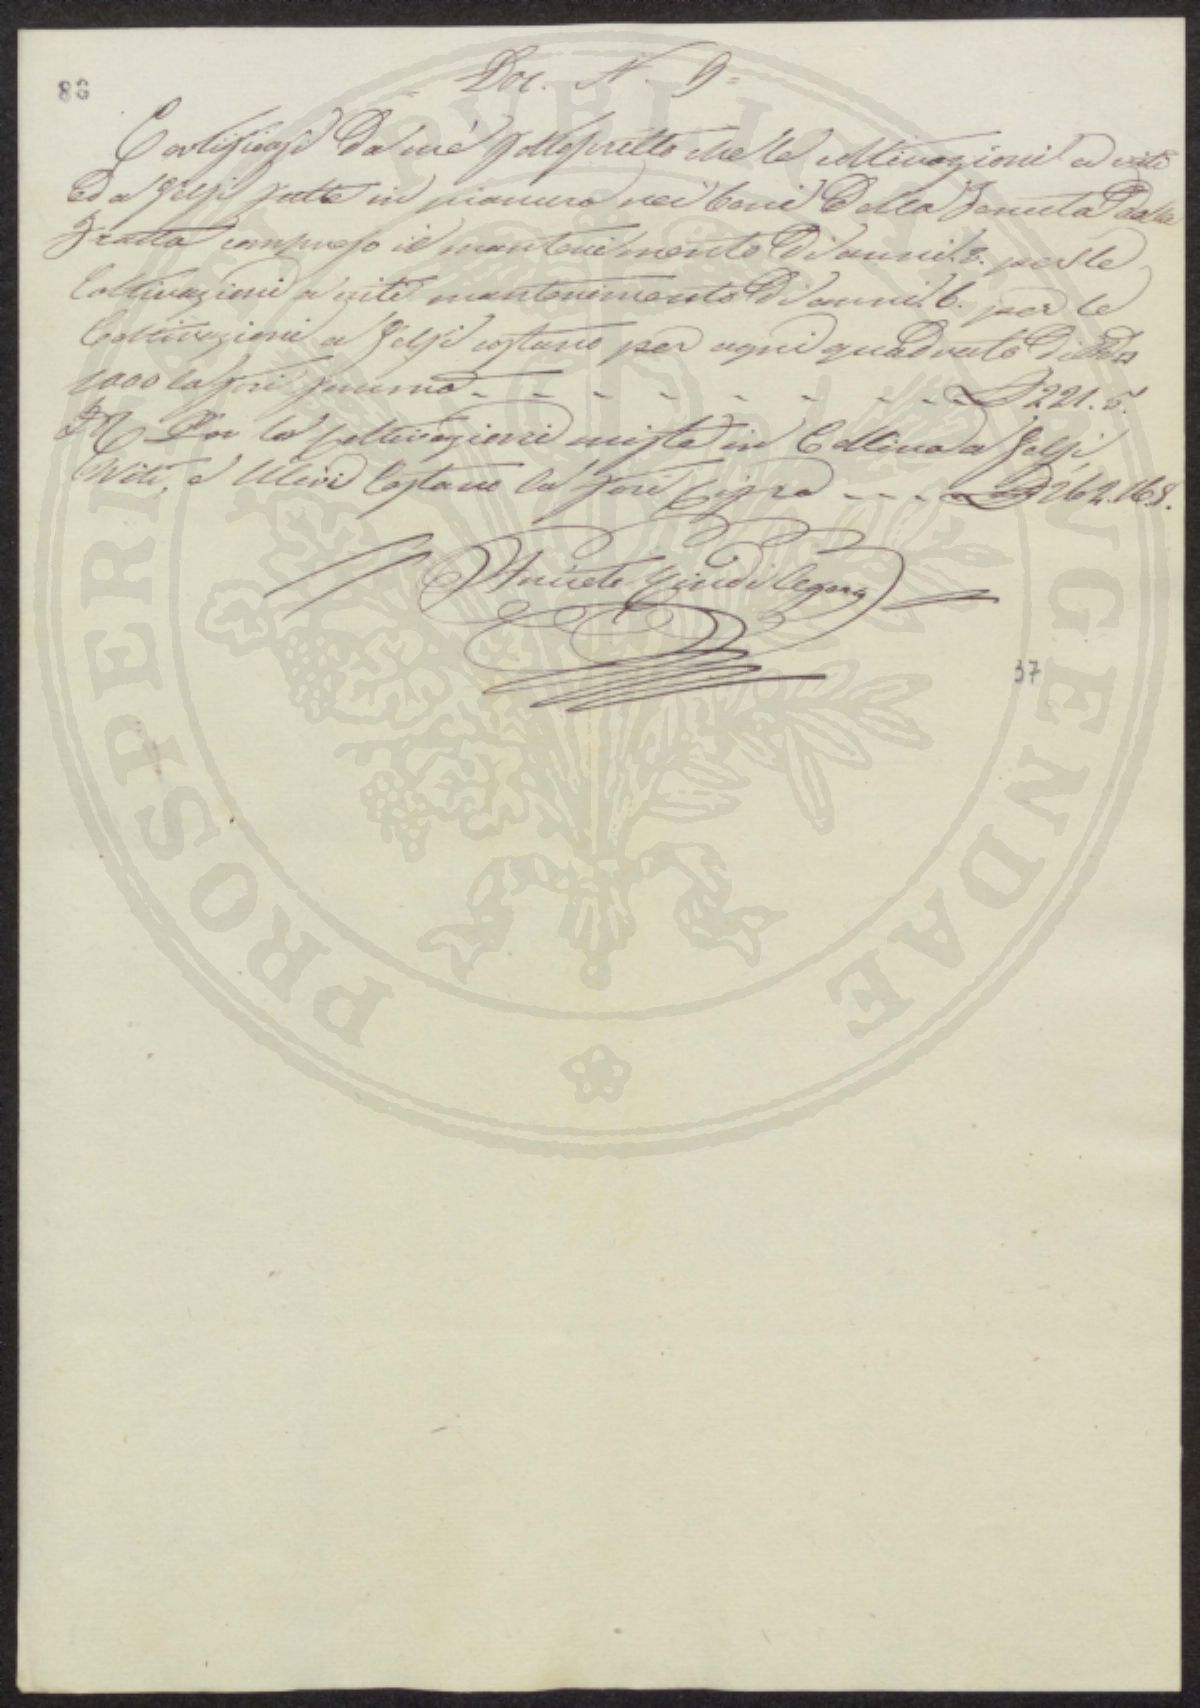 Doc. N. 9
88
Certificasi da me sottoscritto che le coltivazioni a viti
ed a gelsi fatte in pianura nei beni della Tenuta della
Fratta compreso il mantenimento di anni 3. per le
Coltivazioni a viti mantenimento di anni 6. per le
Coltivazioni a Gelsi costano per ogni quadrato di
1000 la somma £ 221. 5.
Per le coltivazioni miste in Collina a Gelsi
Viti, e Ulivi Costano la £ 262. 16. 8.
37
PROSPERITATI PUBLICAE AUGENDAE